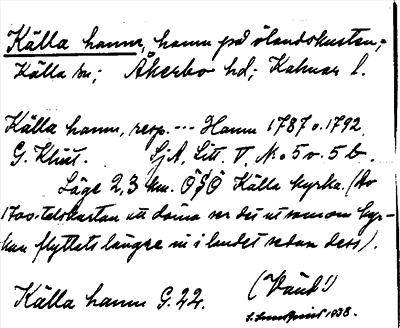 Källa hamn, hamn på ölandskusten;
Källa sn; Åkerbo hd; Kalmar l.
Källa hamn, resp. --- Hamn 1787 o. 1792.
G. Klint. SjA, Litt. V, No 5 o. 5 b.
Läge 2,3 km. ÖSÖ Källa kyrka. (Av
1700-talskartan att döma ser det ut som om kyr-
kan flyttats längre in i landet sedan dess).
Källa hamn G. 22. (Vänd!)
S. Lundqvist 1938.